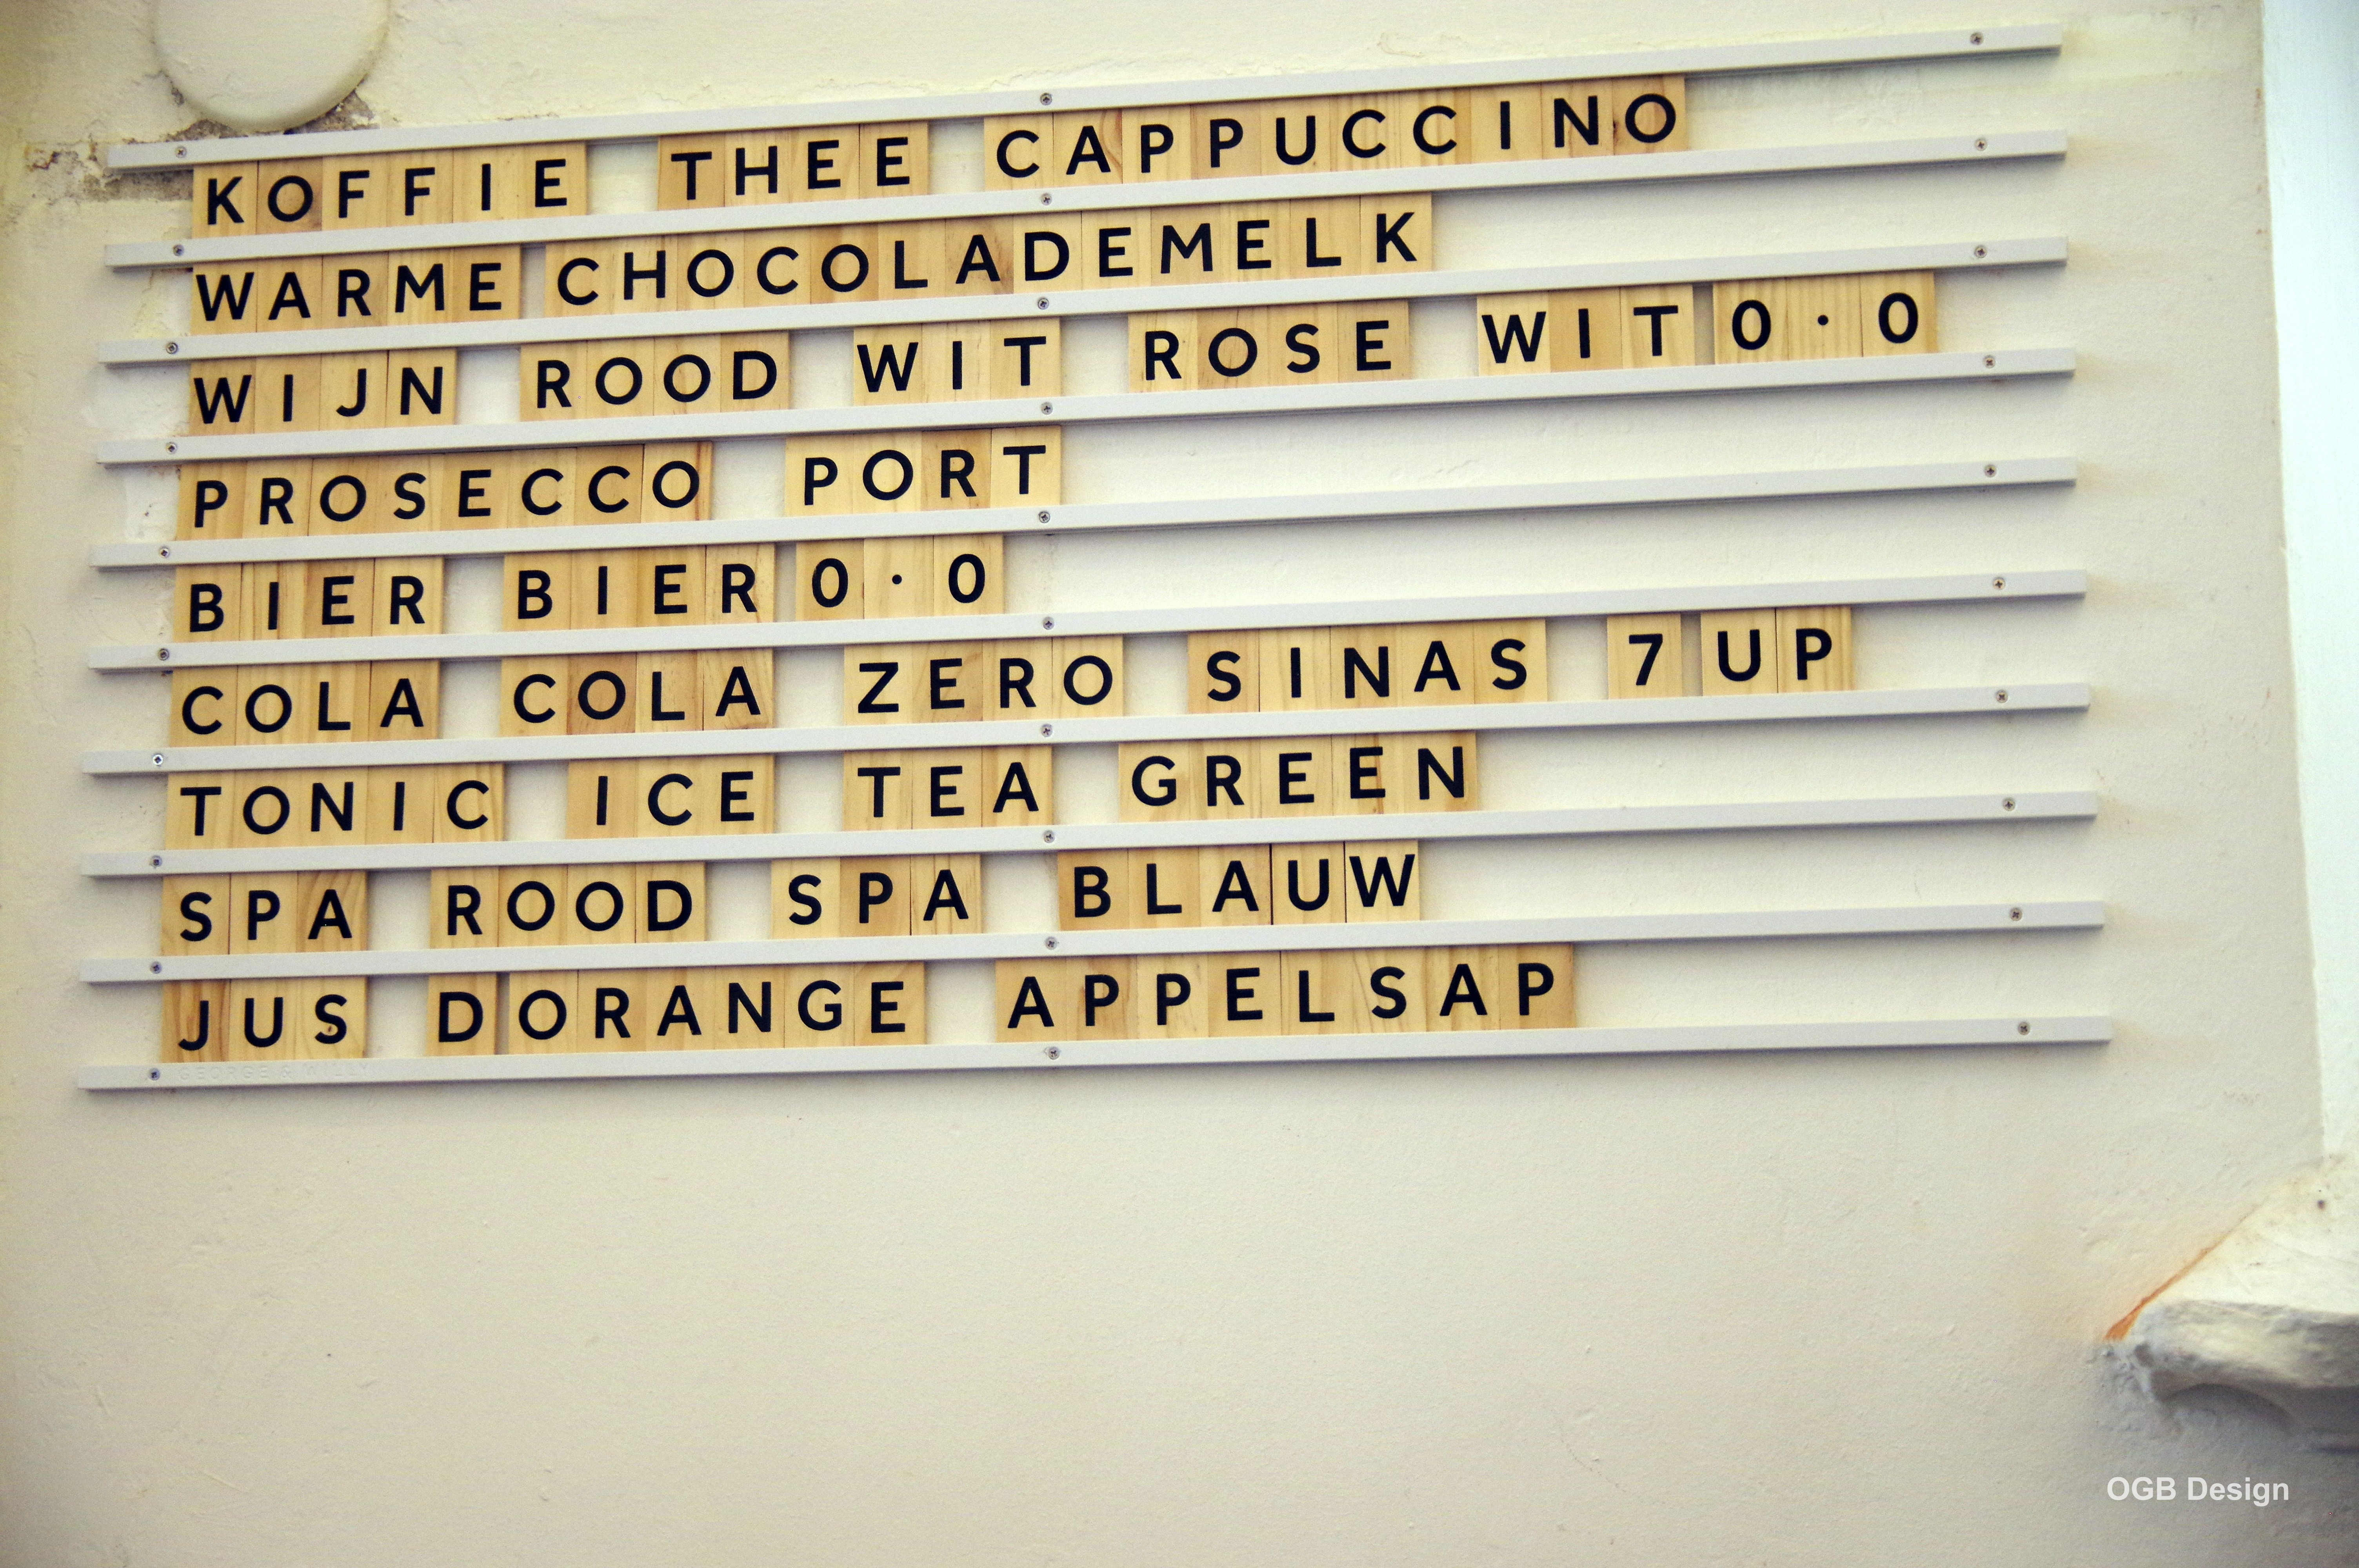 KOFFIE THEE CAPPUCCINO
WARME CHOCOLADEMELK
WIJN ROOD WIT ROSE WIT 0·0
PROSECCO PORT
BIER BIER 0·0
COLA COLA ZERO SINAS 7 UP
TONIC ICE TEA GREEN
SPA ROOD SPA BLAUW
JUS DORANGE APPELSAP
GEORGE & WILLY
OGB Design